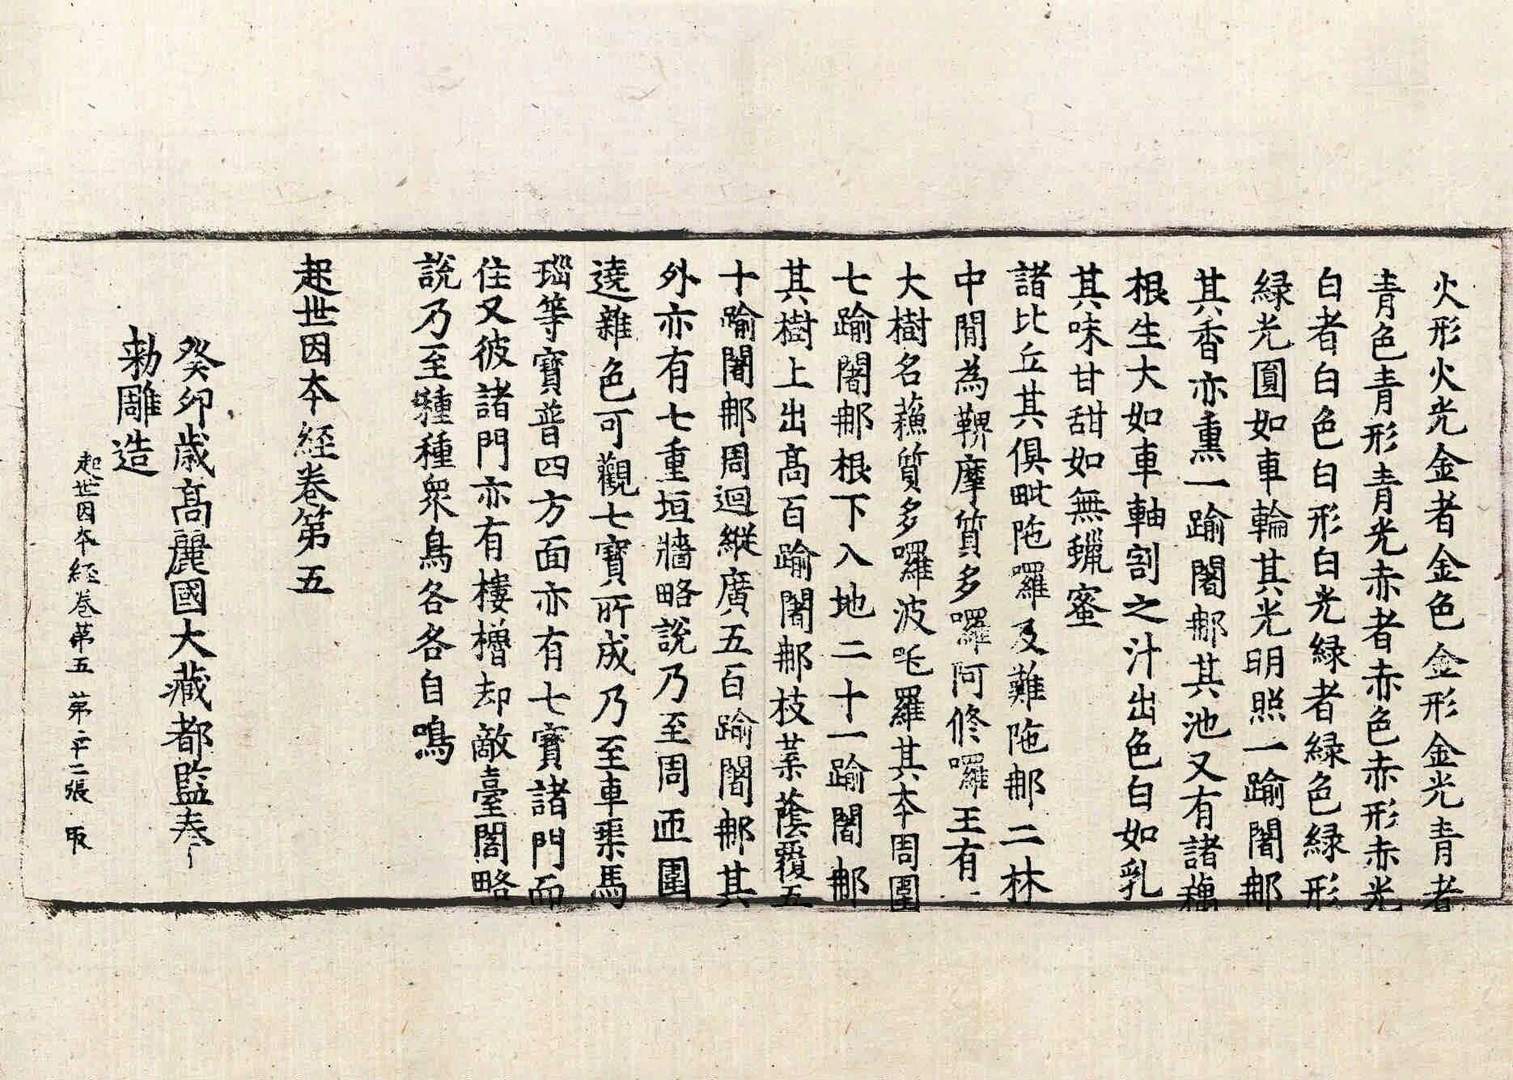 火形火光金者金色金形金光青者
青色青形青光赤者赤色赤形赤光
白者白色白形白光緑者緑色緑形
緑光圎如車輪其光明照一踰闍𨚗
其香亦熏一踰闍𨚗其池又有諸藕
根生大如車軸割之汁出色白如乳
其味甘甜如無蠟蜜
諸比丘其俱毗陁囉及難陁𨚗二林
中閒為鞞摩質多囉阿修囉王有一
大樹名蘓質多囉波吒羅其夲周圍
七踰闍𨚗根下入地二十一踰闍𨚗
其樹上出髙百踰闍𨚗枝葉蔭覆五
十踰闍𨚗周迴縱廣五百踰闍𨚗其
外亦有七重垣牆略說乃至周匝圍
遶雜色可觀七寶所成乃至車𤦲馬
瑙等寶普四方面亦有七寶諸門而
住又彼諸門亦有樓櫓却敵臺閣略
說乃至種種衆鳥各各自鳴
起世因夲經卷第五
癸卯歳髙麗國大藏都監奉
勑雕造
起世因夲經卷第五 第二十二張